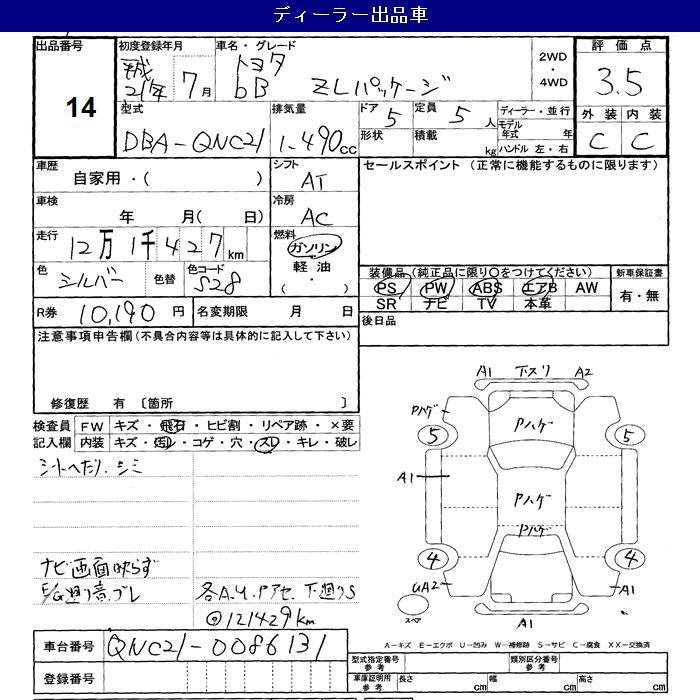 ディーラー出品車
出品番号 初度登録年月 車名・グレード 2WD ・ 4WD 評価点
14
平成 21年 7月 トヨタ bB ZLパッケージ 3.5
型式 排気量 ドア 5 定員 5人 ディーラー・並行 外装 内装
DBA-QNC21 1.490cc 形状 積載 kg モデル年式 年 C C
ハンドル 左・右
車歴 シフト セールスポイント (正常に機能するものに限ります)
自家用・( ) AT
車検 冷房
年 月( 日) AC
走行 燃料
12万1千427km ガソリン
色 シルバー 色替 色コード S28 軽油
( ・ )
装備品(純正品に限り○をつけてください) 新車保証書
PS PW ABS エアB AW 有・無
SR ナビ TV 本革
R券 10,190円 名変期限 月 日 後日品
注意事項申告欄(不具合内容等は具体的に記入して下さい)
修復歴 有 〔箇所 〕
検査員 FW キズ・飛石・ヒビ割・リペア跡・×要
記入欄 内装 キズ・汚レ・コゲ・穴・スレ・キレ・破レ
シートへたり、シミ
ナビ画面映らず
E/G廻り音、ブレ 各A.U.Pアセ、下廻りS
@121429km
A1 下スリ A2
Pハゲ Pハゲ
5 5
A1
Pハゲ
Pハゲ
4 4
UA2 A1
スペア A1
A-キズ E-エクボ U-凹み W-補修跡 S-サビ C-腐食 XX-交換済
車台番号 QNC21-0086131
型式指定番号 参考 類別区分番号 参考
登録番号 車庫証明用 参考 長さ cm 幅 cm 高さ cm